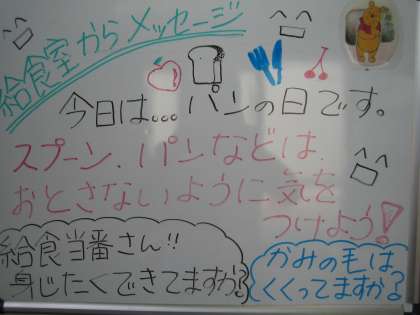 給食室からメッセージ
今日は...パンの日です。
スプーン、パンなどは、
おとさないように気を
つけよう!
給食当番さん!!
身じたくできてますか?
かみの毛は
くくってますか?